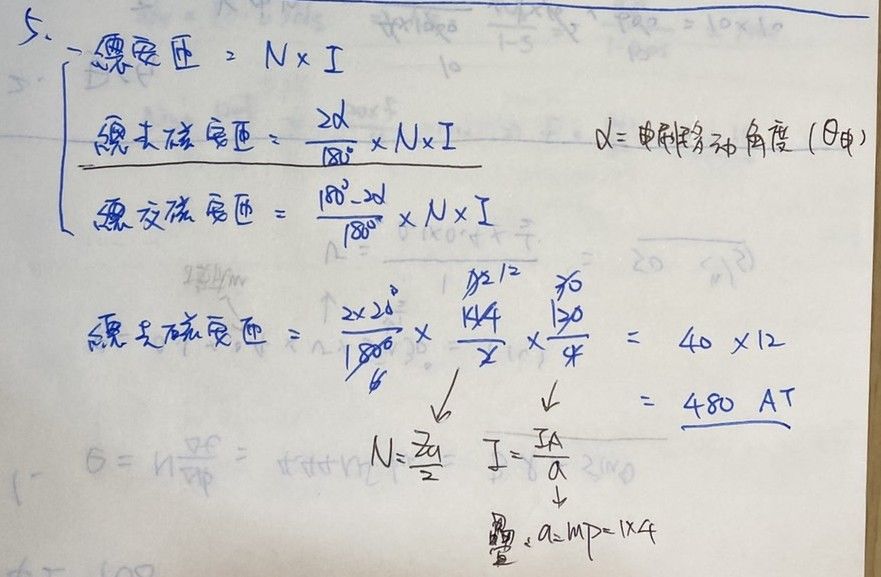 5.
總安匝 = N × I
總去磁安匝 = 2α/180° × N × I
α = 電刷移動角度 (θ电)
總交磁安匝 = 180°-2α/180° × N × I
總去磁安匝 = 2×20°/180° × 144/2 × 120/4 = 40 × 12
= 480 AT
N = Za/2 I = IA/a
疊: a = mp = 1×4